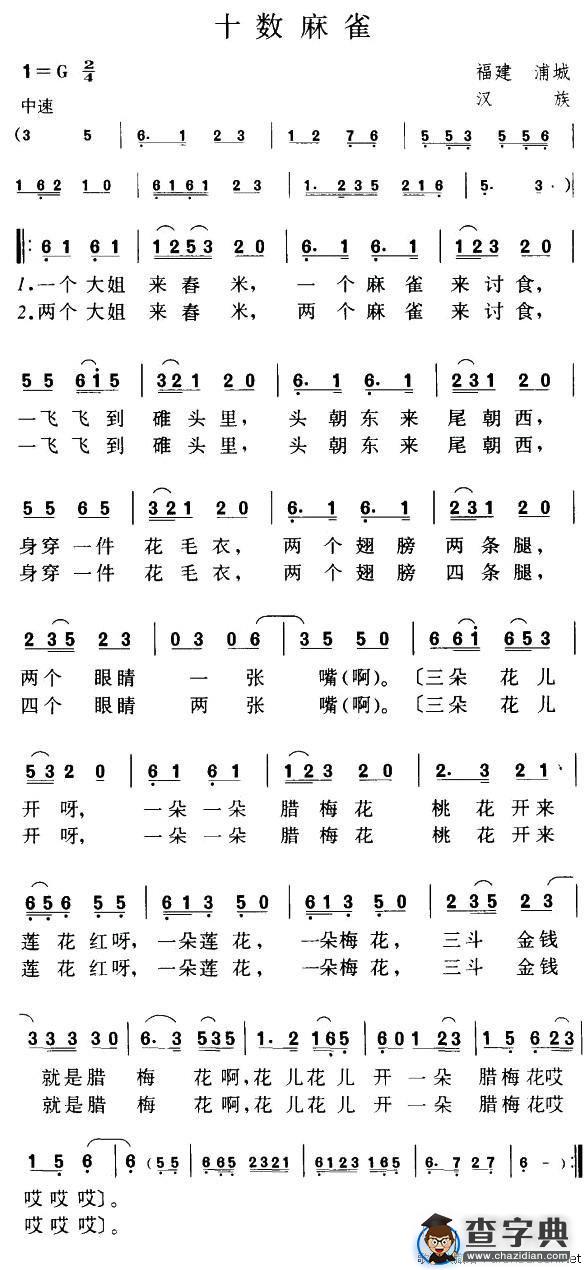 十数麻雀
1=G 2/4
福建 浦城
中速
汉 族
(3 5 | 6. 1 2 3 | 1 2 7 6 | 5 5 3 5 5 6 |
1 6 2 1 0 | 6 1 6 1 2 3 | 1. 2 3 5 2 1 6 | 5. 3 · ) |
‖: 6 1 6 1 | 1 2 5 3 2 0 | 6. 1 6. 1 | 1 2 3 2 0 |
1.一个大姐 来舂米, 一个麻雀来讨食,
2.两个大姐 来舂米, 两个麻雀来讨食,
5 5 6 i 5 | 3 2 1 2 0 | 6. 1 6. 1 | 2 3 1 2 0 |
一飞飞到 碓头里, 头朝东来尾朝西,
一飞飞到 碓头里, 头朝东来尾朝西,
5 5 6 5 | 3 2 1 2 0 | 6. 1 6. 1 | 2 3 1 2 0 |
身穿一件 花毛衣, 两个翅膀两条腿,
身穿一件 花毛衣, 两个翅膀四条腿,
2 3 5 2 3 | 0 3 0 6 | 3 5 5 0 | 6 6 i 6 5 3 |
两个眼睛 一张 嘴(啊)。〔三朵花儿
四个眼睛 两张 嘴(啊)。〔三朵花儿
5 3 2 0 | 6 1 6 1 | 1 2 3 2 0 | 2. 3 2 1 |
开呀, 一朵一朵 腊梅花 桃花开来
开呀, 一朵一朵 腊梅花 桃花开来
6 5 6 5 5 | 6 1 3 5 0 | 6 1 3 5 0 | 2 3 5 2 3 |
莲花红呀, 一朵莲花, 一朵梅花, 三斗金钱
莲花红呀, 一朵莲花, 一朵梅花, 三斗金钱
3 3 3 3 0 | 6. 3 5 3 5 | 1. 2 1 6 5 | 6 0 1 2 3 | 1 5 6 2 3 |
就是腊 梅 花啊,花儿花儿 开一朵 腊梅花哎
就是腊 梅 花啊,花儿花儿 开一朵 腊梅花哎
1 5 6 | 6 (5 5 | 6 6 5 2 3 2 1 | 6 1 2 3 1 6 5 | 6. 7 2 7 | 6 - ) :‖
哎哎哎〕。
哎哎哎〕。
查字典
www.chazidian.com